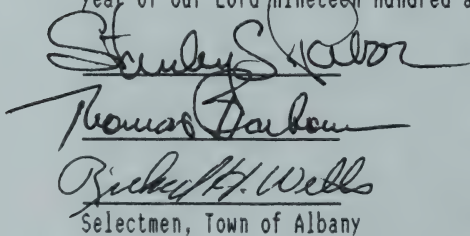 year of our Lord nineteen hundred a
Stanley S. Tabor
Thomas Barbour
Richard H. Wells
Selectmen, Town of Albany